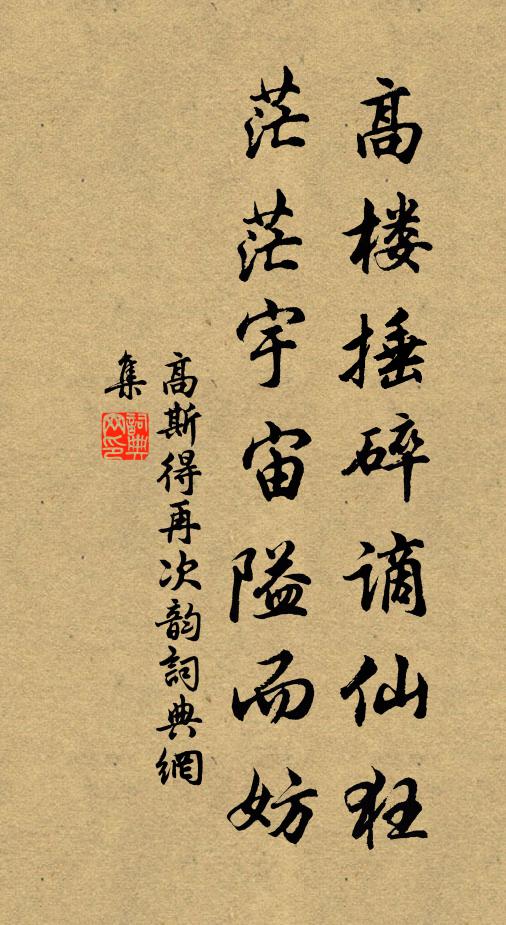 高楼捶碎謫仙狂
茫茫宇宙隘而妨
高斯得再次韵詞典網
集
詞典
网印